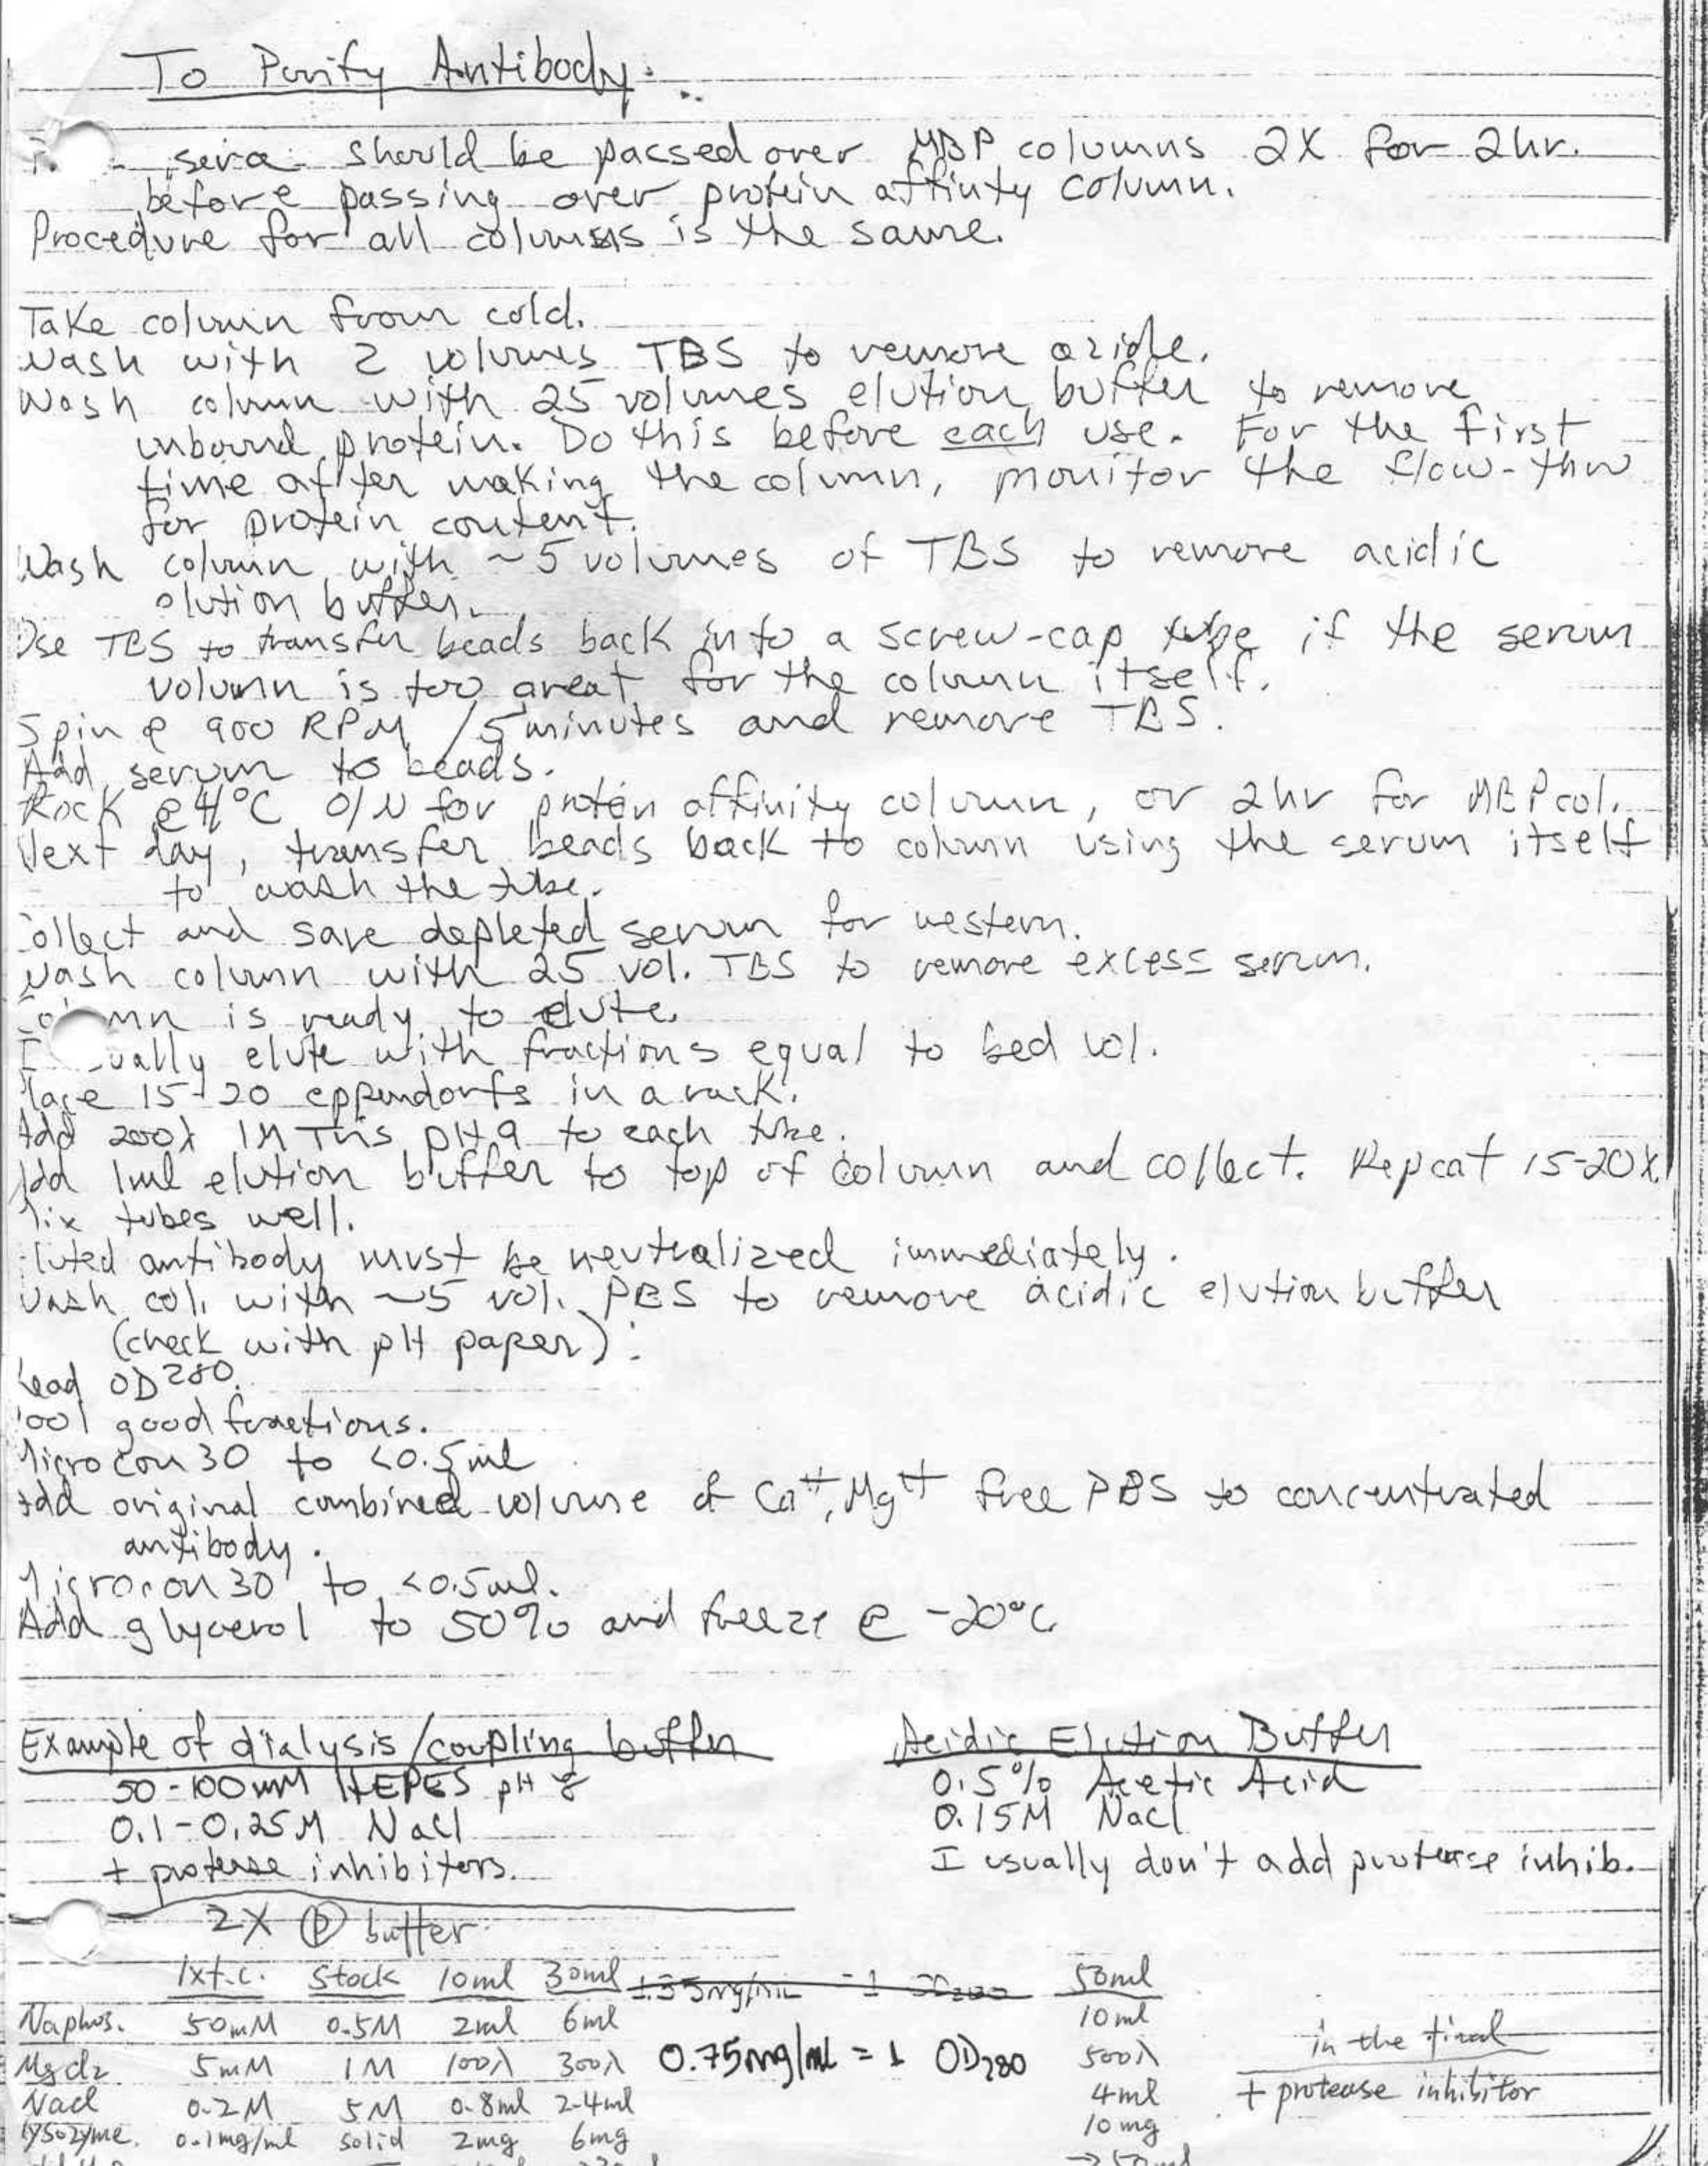 To Purify Antibody:
sera should be passed over MBP columns 2X for 2hr.
before passing over protein affinty column.
Procedure for all columns is the same.
Take column from cold.
Wash with 2 volumes TBS to remove azide.
Wash column with 25 volumes elution buffer to remove
unbound protein. Do this before each use. For the first
time after making the column, monitor the flow-thru
for protein content.
Wash column with ~5 volumes of TBS to remove acidic
elution buffer.
Use TBS to transfer beads back into a screw-cap tube if the serum
volumn is too great for the column itself.
Spin @ 900 RPM /5minutes and remove TBS.
Add serum to beads.
Rock @4°C O/N for protein affinity column, or 2hr for MBP col.
Next day, transfer beads back to column using the serum itself
to wash the tube.
Collect and save depleted serum for western.
Wash column with 25 vol. TBS to remove excess serum.
Column is ready to elute.
I usually elute with fractions equal to bed vol.
Place 15-20 eppendorfs in a rack.
Add 200λ 1M Tris pH 9 to each tube.
Add 1ml elution buffer to top of column and collect. Repeat 15-20X.
Mix tubes well.
Eluted antibody must be neutralized immediately.
Wash col. with ~5 vol. PBS to remove acidic elution buffer
(check with pH paper).
Read OD280.
Pool good fractions.
Microcon 30 to <0.5ml
Add original combined volume of Ca++, Mg++ free PBS to concentrated
antibody.
Microcon 30 to <0.5ml.
Add glycerol to 50% and freeze @ -20°C
Example of dialysis/coupling buffer
50-100mM HEPES pH 8
0.1-0.25M NaCl
+ protease inhibitors.
Acidic Elution Buffer
0.5% Acetic Acid
0.15M NaCl
I usually don't add protease inhib.
2X Ⓟ buffer
1xf.c. Stock 10ml 30ml 1.35mg/ml = 1 OD280 50ml
Naphos. 50mM 0.5M 2ml 6ml 10ml
MgCl2 5mM 1M 100λ 300λ 0.75mg/ml = 1 OD280 500λ in the final
NaCl 0.2M 5M 0.8ml 2.4ml 4ml + protease inhibitor
lysozyme. 0.1mg/ml solid 2mg 6mg 10mg
→50ml